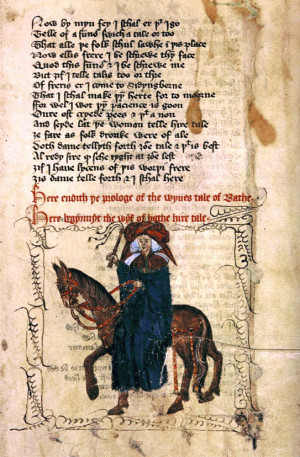 Now by myn fey I schal er þt I go
Telle of a sūnour swich a tale or two
That alle þe folk schal lawhe ī þis place
Now ellis frere I be schrewe thy face
Quod this sūnour & I be schrewe me
But ȝif I telle talis too or thre
Of freris er I come to Sydyngborne
That I schal make þyn herte for to morne
ffor wel I wot þy pacience is goon
Oure ost cryede pees & þt a non
And seyde lat þe woman telle hire tale
Ȝe fare as folk dronke were of ale
Doth dame tellyth forth ȝour tale & þt is best
Al redy sire qd sche ryght as ȝow lest
Ȝif I haue lycens of þis worþi frere
Ȝis dame telle forth & I schal here
Here endith þe prologe of the wyues tale of Bathe
Here begynnyþt the wyf of bathe hire tale